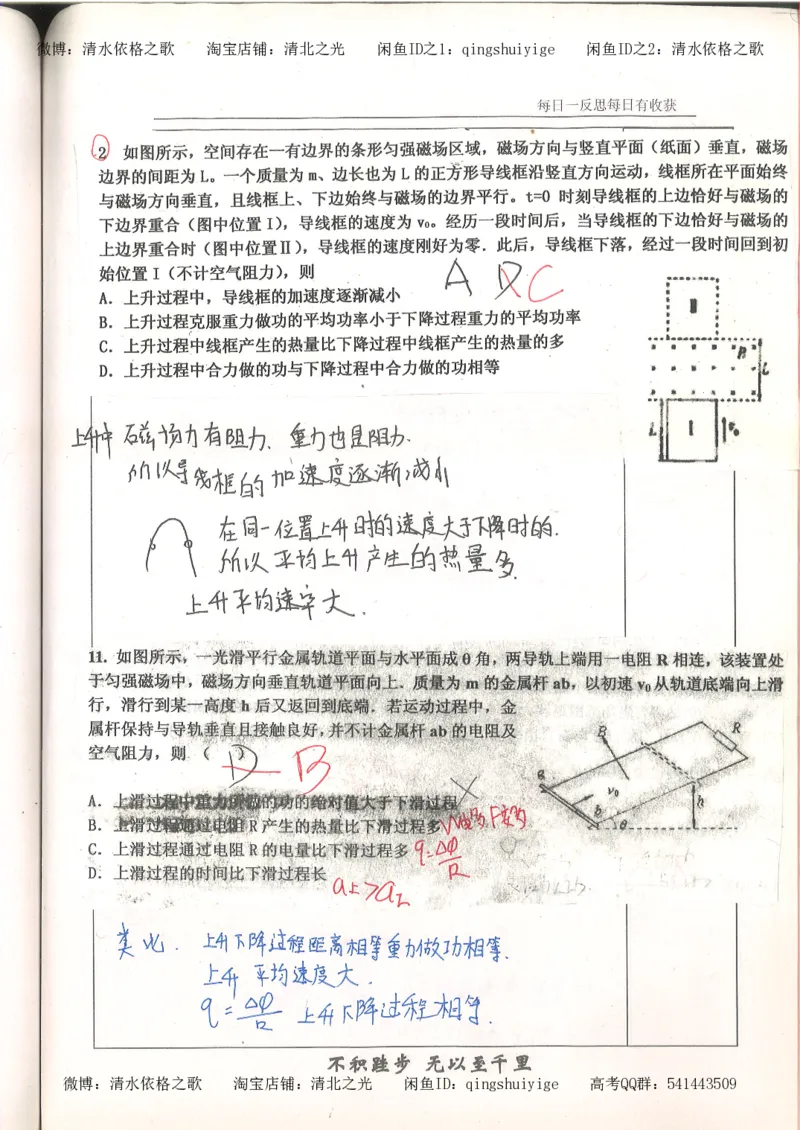 微博：清水依格之歌 淘宝店铺：清北之光 闲鱼ID之1：qingshuiyige 闲鱼ID之2：清水依格之歌
每日一反思每日有收获
2 如图所示，空间存在一有边界的条形匀强磁场区域，磁场方向与竖直平面（纸面）垂直，磁场
边界的间距为 L。一个质量为 m、边长也为 L 的正方形导线框沿竖直方向运动，线框所在平面始终
与磁场方向垂直，且线框上、下边始终与磁场的边界平行。t=0 时刻导线框的上边恰好与磁场的
下边界重合（图中位置Ⅰ），导线框的速度为 v₀。经历一段时间后，当导线框的下边恰好与磁场的
上边界重合时（图中位置Ⅱ），导线框的速度刚好为零．此后，导线框下落，经过一段时间回到初
始位置Ⅰ（不计空气阻力），则
A D C
A．上升过程中，导线框的加速度逐渐减小
B．上升过程克服重力做功的平均功率小于下降过程重力的平均功率
C．上升过程中线框产生的热量比下降过程中线框产生的热量的多
D．上升过程中合力做的功与下降过程中合力做的功相等
Ⅱ
B
L
L Ⅰ v₀
上升中 磁场力有阻力、重力也是阻力.
所以导线框的加速度逐渐减小
在同一位置上升时的速度大于下降时的.
所以 平均上升产生的热量多
上升平均速率大.
11. 如图所示，一光滑平行金属轨道平面与水平面成 θ 角，两导轨上端用一电阻 R 相连，该装置处
于匀强磁场中，磁场方向垂直轨道平面向上．质量为 m 的金属杆 ab，以初速 v₀ 从轨道底端向上滑
行，滑行到某一高度 h 后又返回到底端．若运动过程中，金
属杆保持与导轨垂直且接触良好，并不计金属杆 ab 的电阻及
空气阻力，则（ ）
D B
B R
a v₀ b θ h
A．上滑过程中重力所做的功的绝对值大于下滑过程
B．上滑过程通过电阻 R 产生的热量比下滑过程多
C．上滑过程通过电阻 R 的电量比下滑过程多 q=ΔΦ/R
D．上滑过程的时间比下滑过程长
a上>a下
类比. 上升下降过程距离相等重力做功相等.
上升 平均速度大.
q=ΔΦ/R 上升下降过程相等.
不积跬步 无以至千里
微博：清水依格之歌 淘宝店铺：清北之光 闲鱼ID：qingshuiyige 高考QQ群：541443509